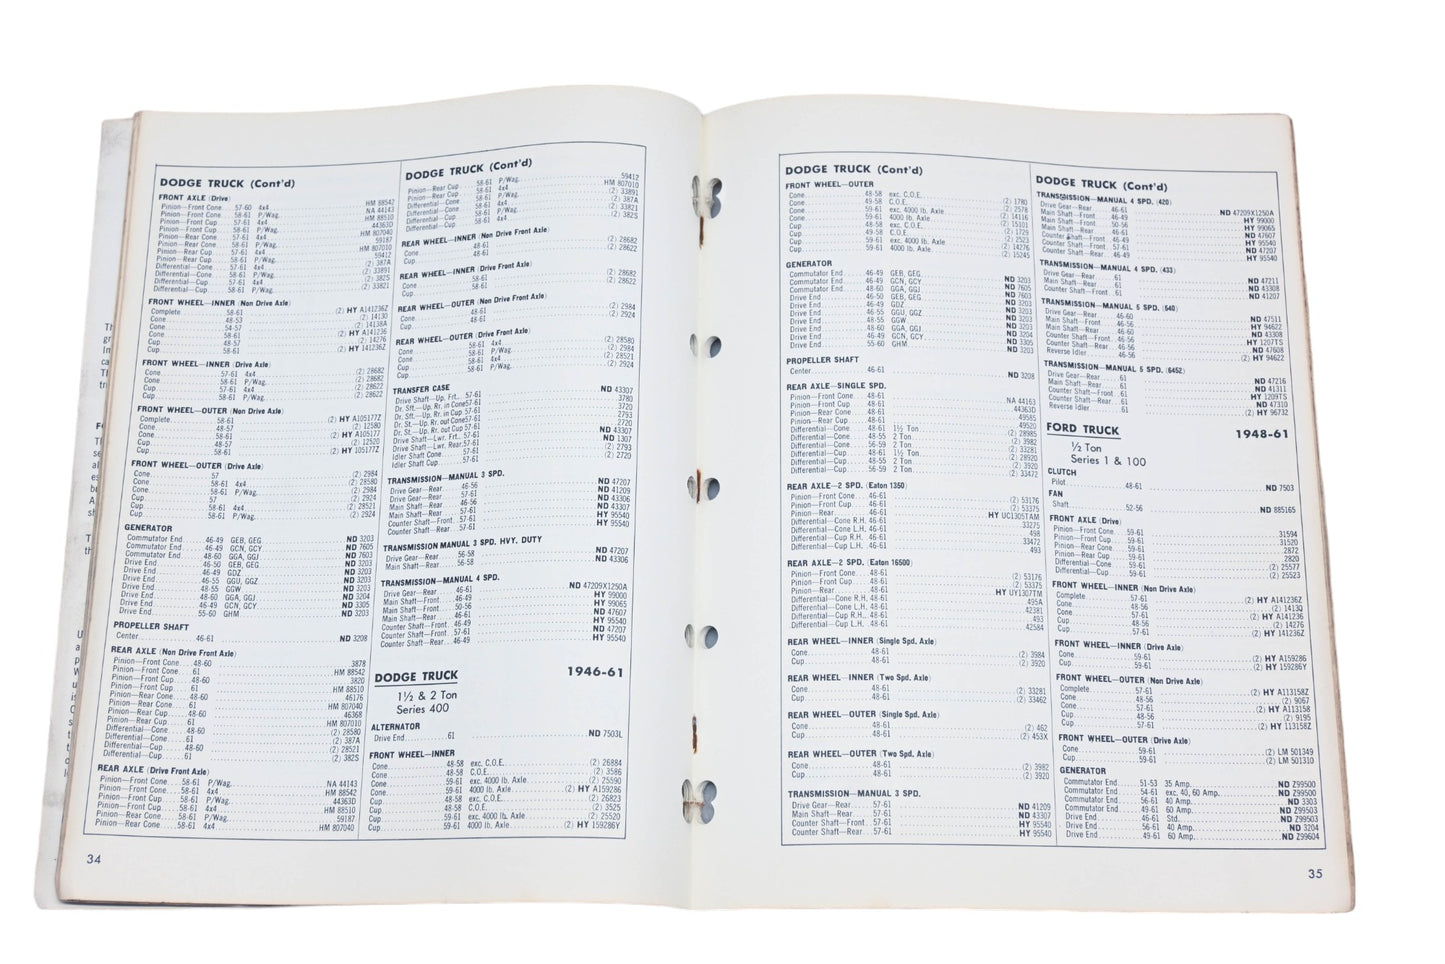 DODGE TRUCK (Cont'd)
FRONT AXLE (Drive)
Pinion—Front Cone 57-60 4x4 HM 88542
Pinion—Front Cone 58-61 P/Wag. NA 44143
Pinion—Front Cup 57-61 4x4 HM 88510
Pinion—Front Cup 58-61 P/Wag. 44363D
Pinion—Rear Cone 57-61 4x4 HM 807040
Pinion—Rear Cone 58-61 P/Wag. 59187
Pinion—Rear Cup 57-61 4x4 HM 807010
Pinion—Rear Cup 58-61 P/Wag. 59412
Differential—Cone 57-61 4x4 (2) 387A
Differential—Cone 58-61 P/Wag. (2) 33891
Differential—Cup 57-61 4x4 (2) 382S
Differential—Cup 58-61 P/Wag. (2) 33821
FRONT WHEEL—INNER (Non Drive Axle)
Complete 58-61 (2) HY A141236Z
Cone 48-53 (2) 14130
Cone 54-57 (2) 14138A
Cone 58-61 (2) HY A141236
Cup 48-57 (2) 14276
Cup 58-61 (2) HY 141236Z
FRONT WHEEL—INNER (Drive Axle)
Cone 57-61 4x4 (2) 28682
Cone 58-61 P/Wag. (2) 28682
Cup 57-61 4x4 (2) 28622
Cup 58-61 P/Wag. (2) 28622
FRONT WHEEL—OUTER (Non Drive Axle)
Complete 58-61 (2) HY A105177Z
Cone 48-57 (2) 12580
Cone 58-61 (2) HY A105177
Cup 48-57 (2) 12520
Cup 58-61 (2) HY 105177Z
FRONT WHEEL—OUTER (Drive Axle)
Cone 57 (2) 2984
Cone 58-61 4x4 (2) 28580
Cone 58-61 P/Wag. (2) 2984
Cup 57 (2) 2924
Cup 58-61 4x4 (2) 28521
Cup 58-61 P/Wag. (2) 2924
GENERATOR
Commutator End 46-49 GEB, GEG ND 3203
Commutator End 46-49 GCN, GCY ND 7605
Commutator End 48-60 GGA, GGJ ND 7603
Drive End 46-50 GEB, GEG ND 3203
Drive End 46-49 GDZ ND 3203
Drive End 46-55 GGU, GGZ ND 3203
Drive End 48-55 GGW ND 3203
Drive End 48-60 GGA, GGJ ND 3204
Drive End 46-49 GCN, GCY ND 3305
Drive End 55-60 GHM ND 3203
PROPELLER SHAFT
Center 46-61 ND 3208
REAR AXLE (Non Drive Front Axle)
Pinion—Front Cone 48-60 3878
Pinion—Front Cone 61 HM 88542
Pinion—Front Cup 48-60 3820
Pinion—Front Cup 61 HM 88510
Pinion—Rear Cone 48-60 46176
Pinion—Rear Cone 61 HM 807040
Pinion—Rear Cup 48-60 46368
Pinion—Rear Cup 61 HM 807010
Differential—Cone 48-60 (2) 28580
Differential—Cone 61 (2) 387A
Differential—Cup 48-60 (2) 28521
Differential—Cup 61 (2) 382S
REAR AXLE (Drive Front Axle)
Pinion—Front Cone 58-61 P/Wag. NA 44143
Pinion—Front Cone 58-61 4x4 HM 88542
Pinion—Front Cup 58-61 P/Wag. 44363D
Pinion—Front Cup 58-61 4x4 HM 88510
Pinion—Rear Cone 58-61 P/Wag. 59187
Pinion—Rear Cone 58-61 4x4 HM 807040
34
DODGE TRUCK (Cont'd)
Pinion—Rear Cup 58-61 P/Wag. 59412
Pinion—Rear Cup 58-61 4x4 HM 807010
Differential—Cone 58-61 P/Wag. (2) 33891
Differential—Cone 58-61 4x4 (2) 387A
Differential—Cup 58-61 P/Wag. (2) 33821
Differential—Cup 58-61 4x4 (2) 382S
REAR WHEEL—INNER (Non Drive Front Axle)
Cone 48-61 (2) 28682
Cup 48-61 (2) 28622
REAR WHEEL—INNER (Drive Front Axle)
Cone 58-61 (2) 28682
Cup 58-61 (2) 28622
REAR WHEEL—OUTER (Non Drive Front Axle)
Cone 48-61 (2) 2984
Cup 48-61 (2) 2924
REAR WHEEL—OUTER (Drive Front Axle)
Cone 58-61 4x4 (2) 28580
Cone 58-61 P/Wag. (2) 2984
Cup 58-61 4x4 (2) 28521
Cup 58-61 P/Wag. (2) 2924
TRANSFER CASE
Drive Shaft—Up. Frt. 57-61 ND 43307
Dr. Sft.—Up. Rr. in Cone 57-61 3780
Dr. Sft.—Up. Rr. in Cup 57-61 3720
Dr. St.—Up. Rr. out Cone 57-61 2793
Dr. St.—Up. Rr. out Cup 57-61 2720
Drive Shaft—Lwr. Frt. 57-61 ND 43307
Drive Shaft—Lwr. Rear 57-61 ND 1307
Idler Shaft Cone 57-61 (2) 2793
Idler Shaft Cup 57-61 (2) 2720
TRANSMISSION—MANUAL 3 SPD.
Drive Gear—Rear 46-56 ND 47207
Drive Gear—Rear 57-61 ND 41209
Main Shaft—Rear 46-56 ND 43306
Main Shaft—Rear 57-61 ND 43307
Counter Shaft—Front 57-61 HY 95540
Counter Shaft—Rear 57-61 HY 95540
TRANSMISSION—MANUAL 3 SPD. HVY. DUTY
Drive Gear—Rear 56-58 ND 47207
Main Shaft—Rear 56-58 ND 43306
TRANSMISSION—MANUAL 4 SPD.
Drive Gear—Rear 46-61 ND 47209X1250A
Main Shaft—Front 46-49 HY 99000
Main Shaft—Front 50-56 HY 99065
Main Shaft—Rear 46-61 ND 47607
Counter Shaft—Front 46-49 HY 95540
Counter Shaft—Front 57-61 ND 47207
Counter Shaft—Rear 46-49 HY 95540
DODGE TRUCK 1946-61
1½ & 2 Ton
Series 400
ALTERNATOR
Drive End 61 ND 7503L
FRONT WHEEL—INNER
Cone 48-58 exc. C.O.E. (2) 26884
Cone 48-58 C.O.E. (2) 3586
Cone 59-61 exc. 4000 lb. Axle (2) 25590
Cone 59-61 4000 lb. Axle (2) HY A159286
Cup 48-58 exc. C.O.E. (2) 26823
Cup 48-58 C.O.E. (2) 3525
Cup 59-61 exc. 4000 lb. Axle (2) 25520
Cup 59-61 4000 lb. Axle (2) HY 159286Y
DODGE TRUCK (Cont'd)
FRONT WHEEL—OUTER
Cone 48-58 exc. C.O.E. (2) 1780
Cone 49-58 C.O.E. (2) 2578
Cone 59-61 exc. 4000 lb. Axle (2) 14116
Cone 59-61 4000 lb. Axle (2) 15101
Cup 48-58 exc. C.O.E. (2) 1729
Cup 49-58 C.O.E. (2) 2523
Cup 59-61 exc. 4000 lb. Axle (2) 14276
Cup 59-61 4000 lb. Axle (2) 15245
GENERATOR
Commutator End 46-49 GEB, GEG ND 3203
Commutator End 46-49 GCN, GCY ND 7605
Commutator End 48-60 GGA, GGJ ND 7603
Drive End 46-50 GEB, GEG ND 3203
Drive End 46-49 GDZ ND 3203
Drive End 46-55 GGU, GGZ ND 3203
Drive End 48-55 GGW ND 3203
Drive End 48-60 GGA, GGJ ND 3204
Drive End 46-49 GCN, GCY ND 3305
Drive End 55-60 GHM ND 3203
PROPELLER SHAFT
Center 46-61 ND 3208
REAR AXLE—SINGLE SPD.
Pinion—Front Cone 48-61 NA 44163
Pinion—Front Cup 48-61 44363D
Pinion—Rear Cone 48-61 49585
Pinion—Rear Cup 48-61 49520
Differential—Cone 48-61 1½ Ton (2) 28985
Differential—Cone 48-55 2 Ton (2) 3982
Differential—Cone 56-59 2 Ton (2) 33281
Differential—Cup 48-61 1½ Ton (2) 28920
Differential—Cup 48-55 2 Ton (2) 3920
Differential—Cup 56-59 2 Ton (2) 33472
REAR AXLE—2 SPD. (Eaton 1350)
Pinion—Front Cone 46-61 (2) 53176
Pinion—Front Cup 46-61 (2) 53375
Pinion—Rear 46-61 HY UC1305TAM
Differential—Cone R.H. 46-61 33275
Differential—Cone L.H. 46-61 498
Differential—Cup R.H. 46-61 33472
Differential—Cup L.H. 46-61 493
REAR AXLE—2 SPD. (Eaton 16500)
Pinion—Front Cone 48-61 (2) 53176
Pinion—Front Cup 48-61 (2) 53375
Pinion—Rear 48-61 HY UY1307TM
Differential—Cone R.H. 48-61 495A
Differential—Cone L.H. 48-61 42381
Differential—Cup R.H. 48-61 493
Differential—Cup L.H. 48-61 42584
REAR WHEEL—INNER (Single Spd. Axle)
Cone 48-61 (2) 3984
Cup 48-61 (2) 3920
REAR WHEEL—INNER (Two Spd. Axle)
Cone 48-61 (2) 33281
Cup 48-61 (2) 33462
REAR WHEEL—OUTER (Single Spd. Axle)
Cone 48-61 (2) 462
Cup 48-61 (2) 453X
REAR WHEEL—OUTER (Two Spd. Axle)
Cone 48-61 (2) 3982
Cup 48-61 (2) 3920
TRANSMISSION—MANUAL 3 SPD.
Drive Gear—Rear 57-61 ND 41209
Main Shaft—Rear 57-61 ND 43307
Counter Shaft—Front 57-61 HY 95540
Counter Shaft—Rear 57-61 HY 95540
DODGE TRUCK (Cont'd)
TRANSMISSION—MANUAL 4 SPD. (420)
Drive Gear—Rear 46-61 ND 47209X1250A
Main Shaft—Front 46-49 HY 99000
Main Shaft—Front 50-56 HY 99065
Main Shaft—Rear 46-61 ND 47607
Counter Shaft—Front 46-49 HY 95540
Counter Shaft—Front 57-61 ND 47207
Counter Shaft—Rear 46-49 HY 95540
TRANSMISSION—MANUAL 4 SPD. (433)
Drive Gear—Rear 61 ND 47211
Main Shaft—Rear 61 ND 43308
Counter Shaft—Front 61 ND 41207
TRANSMISSION—MANUAL 5 SPD. (540)
Drive Gear—Rear 46-60 ND 47511
Main Shaft—Front 46-56 HY 94622
Main Shaft—Rear 46-60 ND 43308
Counter Shaft—Front 46-56 HY 1207TS
Counter Shaft—Rear 46-56 ND 47608
Reverse Idler 46-56 (2) HY 94622
TRANSMISSION—MANUAL 5 SPD. (6452)
Drive Gear—Rear 61 ND 47216
Main Shaft—Rear 61 ND 41311
Counter Shaft—Front 61 HY 1209TS
Counter Shaft—Rear 61 ND 47310
Reverse Idler 61 (2) HY 96732
FORD TRUCK 1948-61
½ Ton
Series 1 & 100
CLUTCH
Pilot 48-61 ND 7503
FAN
Shaft 52-56 ND 885165
FRONT AXLE (Drive)
Pinion—Front Cone 59-61 31594
Pinion—Front Cup 59-61 31520
Pinion—Rear Cone 59-61 2872
Pinion—Rear Cup 59-61 2820
Differential—Cone 59-61 (2) 25577
Differential—Cup 59-61 (2) 25523
FRONT WHEEL—INNER (Non Drive Axle)
Complete 57-61 (2) HY A141236Z
Cone 48-56 (2) 1413Q
Cone 57-61 (2) HY A141236
Cup 48-56 (2) 14276
Cup 57-61 (2) HY 141236Z
FRONT WHEEL—INNER (Drive Axle)
Cone 59-61 (2) HY A159286
Cup 59-61 (2) HY 159286Y
FRONT WHEEL—OUTER (Non Drive Axle)
Complete 57-61 (2) HY A113158Z
Cone 48-56 (2) 9067
Cone 57-61 (2) HY A113158
Cup 48-56 (2) 9195
Cup 57-61 (2) HY 113158Z
FRONT WHEEL—OUTER (Drive Axle)
Cone 59-61 (2) LM 501349
Cup 59-61 (2) LM 501310
GENERATOR
Commutator End 51-53 35 Amp. ND Z99500
Commutator End 54-61 exc. 40, 60 Amp. ND Z99500
Commutator End 56-61 40 Amp. ND 3303
Commutator End 49-61 60 Amp. ND Z99503
Drive End 46-61 Std. ND Z99503
Drive End 56-61 40 Amp. ND 3204
Drive End 49-61 60 Amp. ND Z99604
35